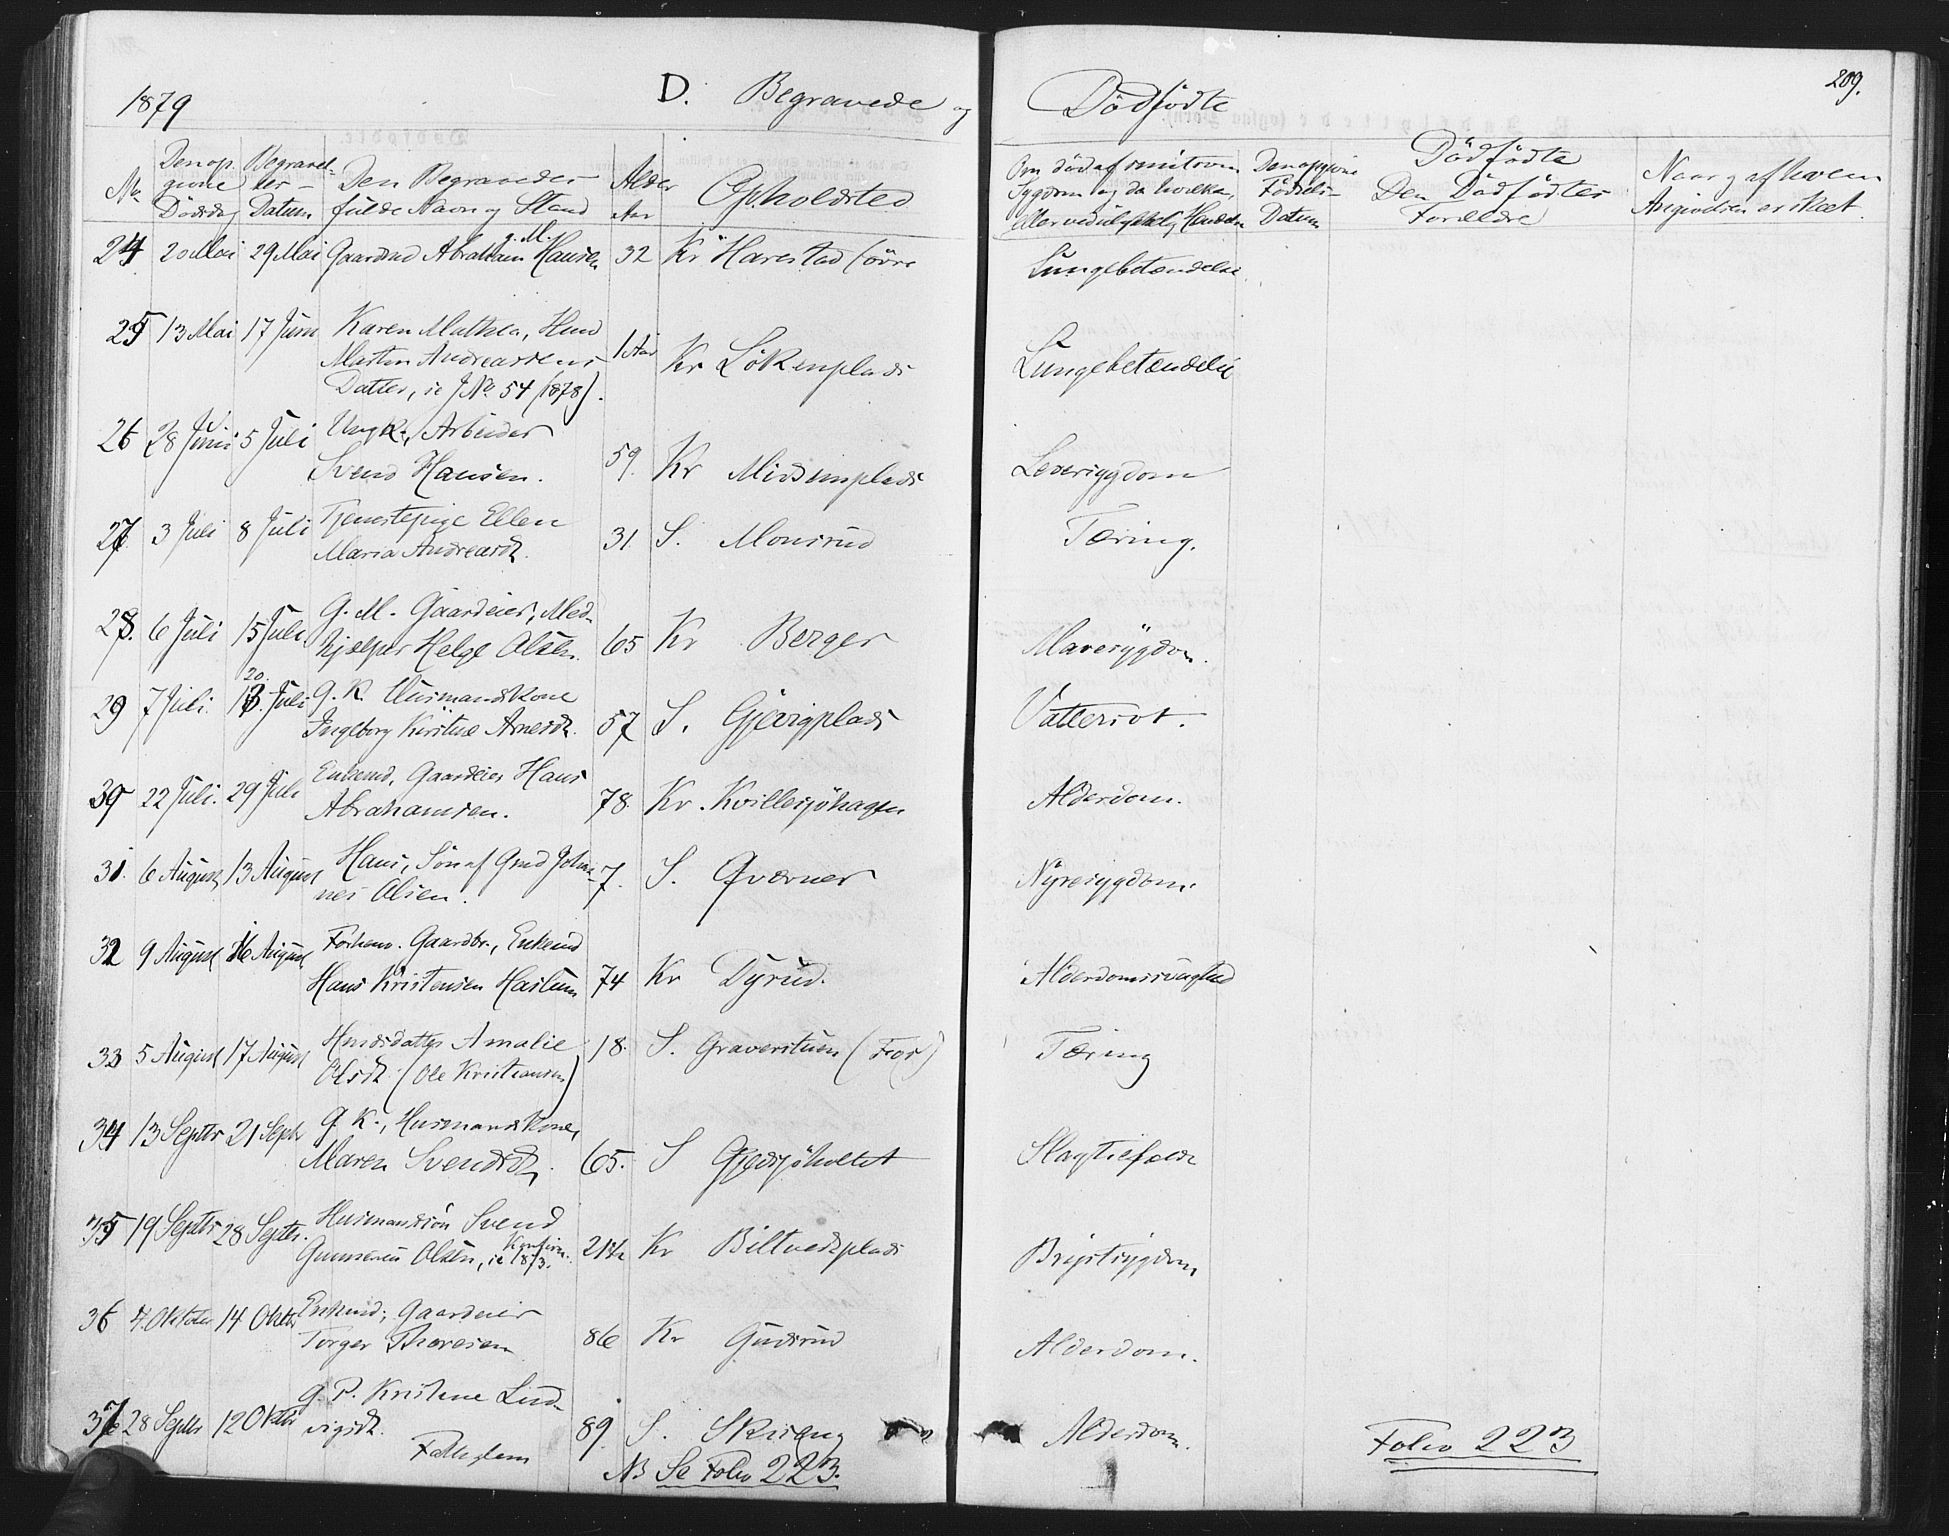 209.
1879 D. Begravede og Dödfödte
No Den opgivne Dödsdag Begravelses-Datum Den Begravedes fulde Navn og Stand Alder Aar Opholdsted Om död af smitsom Sygdom og da hvilken, eller ved ulykkelig Hændelse Den opgivne Födsels-Datum Dödfödte Den Dödfödtes Forældre Naar og af hvem Angivelsen er skeet.
24 20 Mai 29 Mai Gaardmd Abraham g. M. Hansen 32 Kr Harestad söre Lungebetændelse
25 13 Mai 17 Juni Karen Mathea, Husmd
Martin Andreassens 1 Aar Kr Lökenplads Lungebetændelse
Datter, se J No 54 (1878).
26 28 Juni 5 Juli Ungk., Arbeider
Svend Hansen. 59. Kr Midsemplads Leversygdom
27. 3 Juli 8 Juli Tjenestepige Ellen
Maria Andreasd. 31. S. Monsrud Tæring.
28. 6 Juli 15 Juli G. M. Gaardeier, Med-
hjælper Helge Olsen. 65 Kr Berger Mavesygdom.
29 7 Juli. 20. 13. Juli G. K. Husmandskone
Ingeborg Kirstine Arnesd. 57 S. Gjevigplads Vattersot.
30 22 Juli. 29 Juli Enkemd, Gaardeier Hans
Abrahamsen. 78. Kr. Kvillesjöhagen Alderdom.
31. 6 August 13 August Hans, Sön af Gmd Johan-
nes Olsen. 7. S. Qværner Nyresygdom.
32 9 August 16 August Forhenv. Gaardbr., Enkemd
Hans Kristensen Haslum 74 Kr Dyrud. Alderdomssvaghed
33 5 August 17 August Husmdsdatter Amalie
Olsd. (Ole Kristiansen) 18. S. Graverstuen (For) Tæring
34 13 Septbr 21 Septbr G. K., Husmandskone,
Maren Svendsd. 65. S Gjedsjöholtet Slagtilfælde
35 19 Septbr 28 Septbr. Husmandssön Svend
Gunnerius Olsen, se Konfirm. 1873. 21 1/2 Kr Biltvedtplads Brystsygdom
36 4. Oktober 14 Oktbr Enkemd, Gaardeier
Torger Thoresen 86 Kr Gudsrud Alderdom.
37 28 Septbr 12 Oktbr g. P. Kristine Lud-
vigsd. 89. S. Skiseng Alderdom.
Fattiglem
NB Se Folio 223. Folio 223